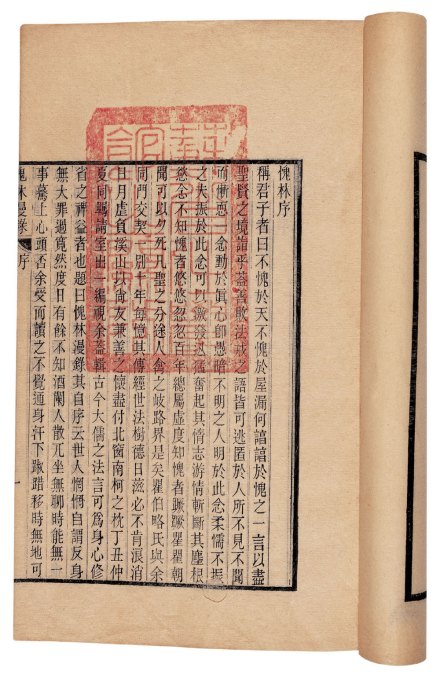 愧林序
稱君子者曰不愧於天不愧於屋漏何諳諳於愧之一言以盡
聖賢之境詣乎蓋善敗法戒之語皆可逃匿於人所不見不聞
而慚惡一念動於眞心卽愚暗不明之人明於此念柔懦不振
之夫振於此念可以激發迅猛奮起其惰志游情斬斷其塵根
慾念不知愧者悠悠忽忽百年總屬虛度知愧者蹶蹶瞿瞿朝
聞可以夕死凡聖之分途人禽之岐路界是矣瞿伯略氏與余
同門交契一別十年每憶其傳經世法樹德日滋必不肯浪消
日月虛負溪山以尙友兼善之懷盡付北窗南柯之枕丁丑仲
夏同羈請室出一編視余蓋輯古今大儒之法言可爲身心修
省之裨益者也題曰愧林漫錄其自序云世人惘惘自謂反身
無大罪過竟然度日有餘不知酒闌人散兀坐無聊時能無一
事驀上心頭否余受而讀之不覺通身汗下踧踖移時無地可
愧林漫錄 序